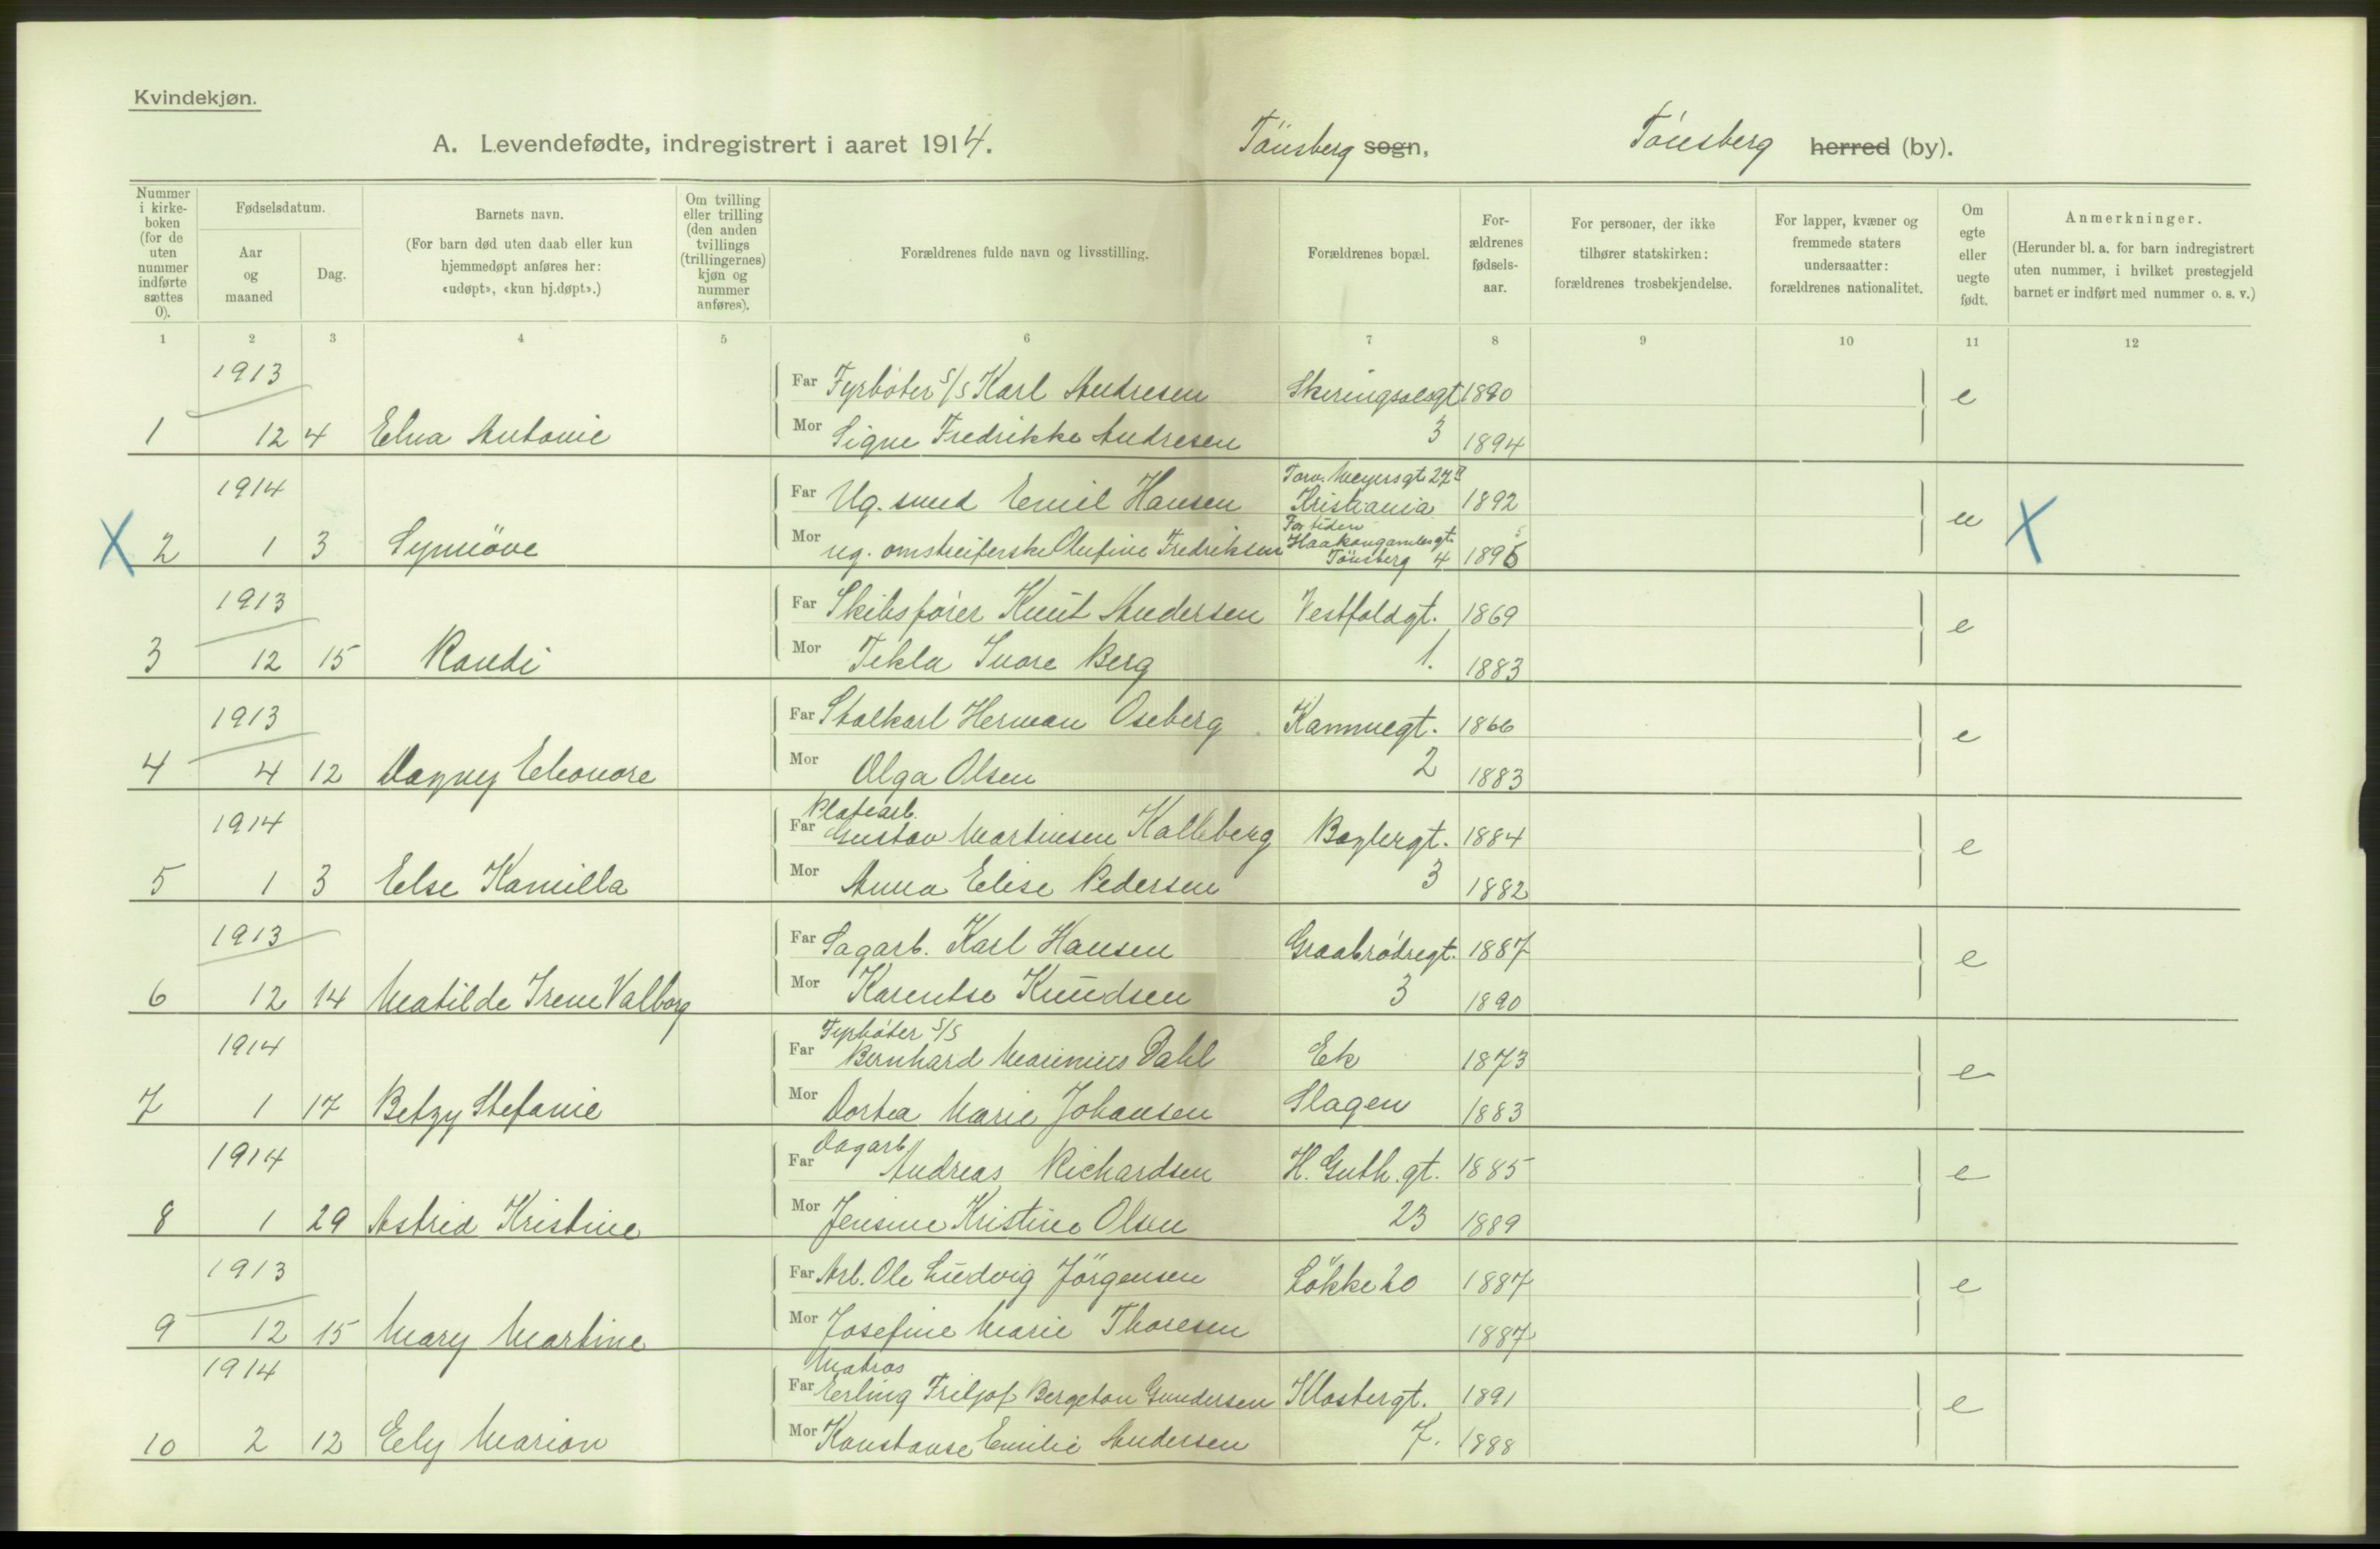 Kvindekjøn.
A. Levendefødte, indregistrert i aaret 1914. Tönsberg sogn, Tönsberg herred (by).
Nummer i kirkeboken (for de uten nummer indførte sættes 0).
Fødselsdatum.
Aar og maaned
Dag.
Barnets navn.
(For barn død uten daab eller kun hjemmedøpt anføres her: «udøpt», «kun hj.døpt».)
Om tvilling eller trilling (den anden tvillings (trillingernes) kjøn og nummer anføres).
Forældrenes fulde navn og livsstilling.
Forældrenes bopæl.
Forældrenes fødselsaar.
For personer, der ikke tilhører statskirken: forældrenes trosbekjendelse.
For lapper, kvæner og fremmede staters undersaatter: forældrenes nationalitet.
Om egte eller uegte født.
Anmerkninger.
(Herunder bl. a. for barn indregistrert uten nummer, i hvilket prestegjeld barnet er indført med nummer o. s. v.)
1 2 3 4 5 6 7 8 9 10 11 12
1913 Far Fyrböter S/S Karl Andresen Skeringsalsgt 1890 e
1 12 4 Elna Antonie Mor Signe Fredrikke Andresen 3 1894
1914 Far Ug. smed Emil Hansen Torv. Meyersgt. 27 II Kristiania 1892 u X
X 2 1 3 Synnöve Mor ug. omstreiferske Olufine Fredriksen For tiden Haakongamlesgt. Tönsberg 4 1895
1913 Far Skibsförer Knut Andersen Vestfoldgt. 1869 e
3 12 15 Randi Mor Tekla Berg 1. 1883
1913 Far Stalkarl Herman Oseberg Kammegt. 1866 e
4 4 12 Dagny Eleonore Mor Olga Olsen 2 1883
1914 Far Platearb. Gustav Martinsen Kalleberg Baglergt. 1884 e
5 1 3 Else Kamilla Mor Anna Elise Pedersen 3 1882
1913 Far Sagarb. Karl Hansen Graabrödregt. 1887 e
6 12 14 Matilde Irene Valborg Mor Karentse Knudsen 3 1890
1914 Far Fyrböter S/S Bernhard Marinius Dahl Ek 1873 e
7 1 17 Betzy Stefanie Mor Dortea Marie Johansen Slagen 1883
1914 Far Dagarb. Andreas Richardsen H. Guth. gt. 1885 e
8 1 29 Astrid Kristine Mor Jensine Kristine Olsen 23 1889
1913 Far Arb. Ole Ludvig Jörgensen Lökke 20 1887 e
9 12 15 Mary Martine Mor Josefine Marie Thoresen 1887
1914 Far Matros Erling Fritjof Bergeton Gundersen Klostergt. 1891 e
10 2 12 Ely Marion Mor Konstanse Emilie Andersen 7. 1888